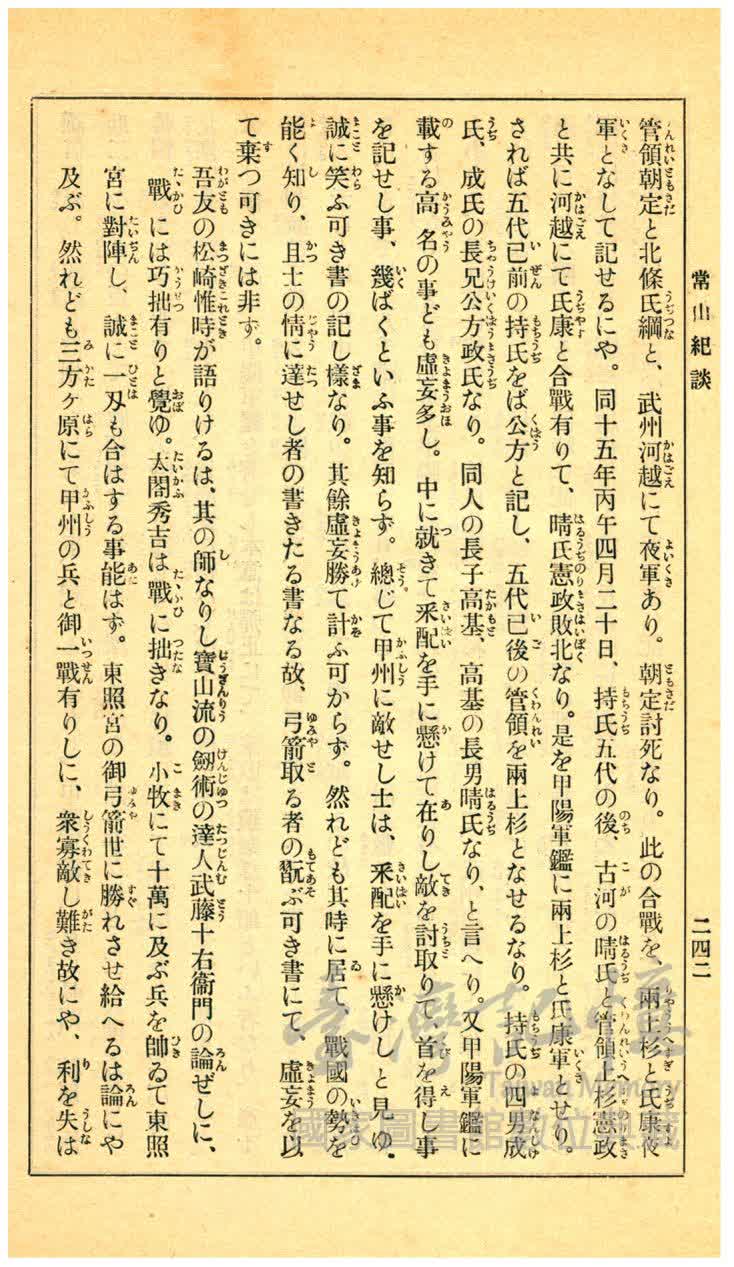 常山紀談
二四二
管領朝定と北條氏綱と、武州河越にて夜軍あり。朝定討死なり。此の合戰を、兩上杉と氏康夜
軍となして記せるにや。同十五年丙午四月二十日、持氏五代の後、古河の晴氏と管領上杉憲政
と共に河越にて氏康と合戰有りて、晴氏憲政敗北なり。是を甲陽軍鑑に兩上杉と氏康軍とせり。
されば五代已前の持氏をば公方と記し、五代已後の管領を兩上杉となせるなり。持氏の四男成
氏、成氏の長兄公方政氏なり。同人の長子高基、高基の長男晴氏なり、と言へり。又甲陽軍鑑に
載する高名の事ども虛妄多し。中に就きて釆配を手に懸けて在りし敵を討取りて、首を得し事
を記せし事、幾ばくといふ事を知らず。總じて甲州に敵せし士は、釆配を手に懸けしと見ゆ。
誠に笑ふ可き書の記し樣なり。其餘虛妄勝て計ふ可からず。然れども其時に居て、戰國の勢を
能く知り、且士の情に達せし者の書きたる書なる故、弓箭取る者の翫ぶ可き書にて、虛妄を以
て棄つ可きには非ず。
吾友の松崎惟時が語りけるは、其の師なりし寶山流の劔術の達人武藤十右衞門の論ぜしに、
戰には巧拙有りと覺ゆ。太閤秀吉は戰に拙きなり。小牧にて十萬に及ぶ兵を帥ゐて東照
宮に對陣し、誠に一刄も合はする事能はず。東照宮の御弓箭世に勝れさせ給へるは論にや
及ぶ。然れども三方ヶ原にて甲州の兵と御一戰有りしに、衆寡敵し難き故にや、利を失は
臺灣記憶
Taiwan Memory
國家圖書館數位典藏